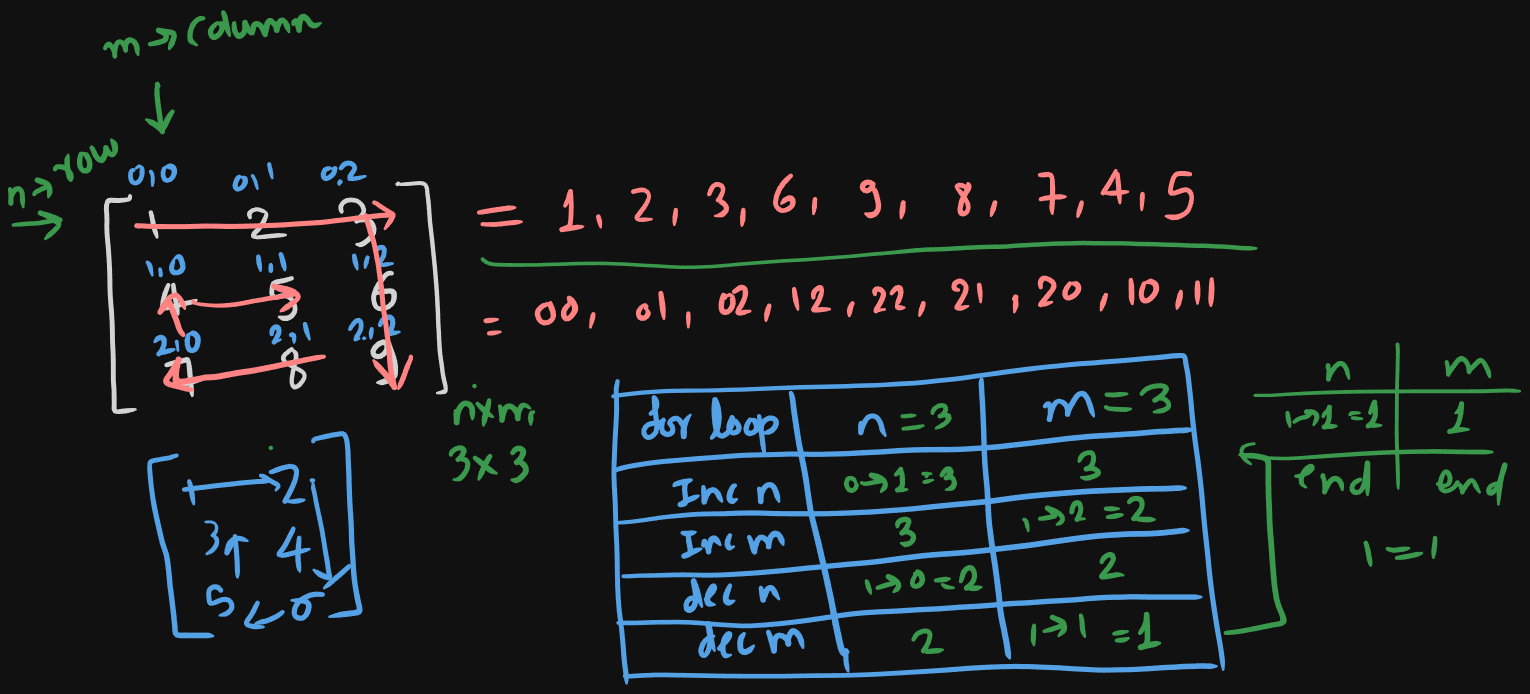 m → Column
n → row
0,0 0,1 0,2
1 2 3
1,0 1,1 1,2
4 5 6
2,0 2,1 2,2
7 8 9
= 1, 2, 3, 6, 9, 8, 7, 4, 5
= 00, 01, 02, 12, 22, 21, 20, 10, 11
n×m
3×3
1 2
3 4
5 6
for loop n = 3 m = 3
Inc n 0→2 = 3 3
Inc m 3 1→2 = 2
dec n 1→0 = 2 2
dec m 2 1→1 = 1
n m
1→1 = 1 1
end end
1 = 1